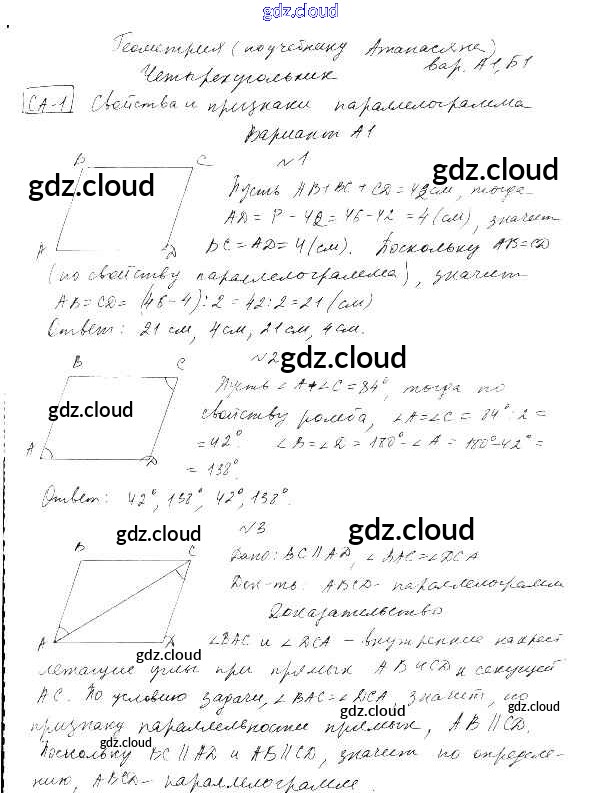 gdz.cloud
Геометрия (по учебнику Атанасяна)
вар. А1, Б1
Четырехугольник
СА-1 Свойства и признаки параллелограмма
Вариант А1
№1
B C
gdz.cloud
gdz.cloud
Пусть AB+BC+CD=42см, тогда
AD = P - 42 = 46-42 = 4 (см), значит
A D
gdz.cloud
BC=AD=4(см). Поскольку AB=CD
(по свойству параллелограмма), значит
AB=CD= (46-4):2 = 42:2=21 (см)
Ответ: 21 см, 4см, 21 см, 4 см.
№2
gdz.cloud
B C
Пусть ∠A+∠C=84°, тогда по
gdz.cloud
свойству ромба, ∠A=∠C= 84°:2=
A D
=42° ∠B=∠D= 180°-∠A= 180°-42°=
gdz.cloud
= 138°.
Ответ: 42°, 138°, 42°, 138°.
№3
gdz.cloud
gdz.cloud
B C
Дано: BC||AD, ∠BAC=∠DCA
Док-ть: ABCD- параллелограмм
Доказательство
A D
∠BAC и ∠DCA - внутренние накрест
gdz.cloud
лежащие углы при прямых AB и CD и секущей
AC. По условию задачи, ∠BAC=∠DCA, значит, по
gdz.cloud
признаку параллельности прямых, AB||CD.
Поскольку BC||AD и AB||CD, значит по определе-
gdz.cloud
нию, ABCD- параллелограмм.
gdz.cloud